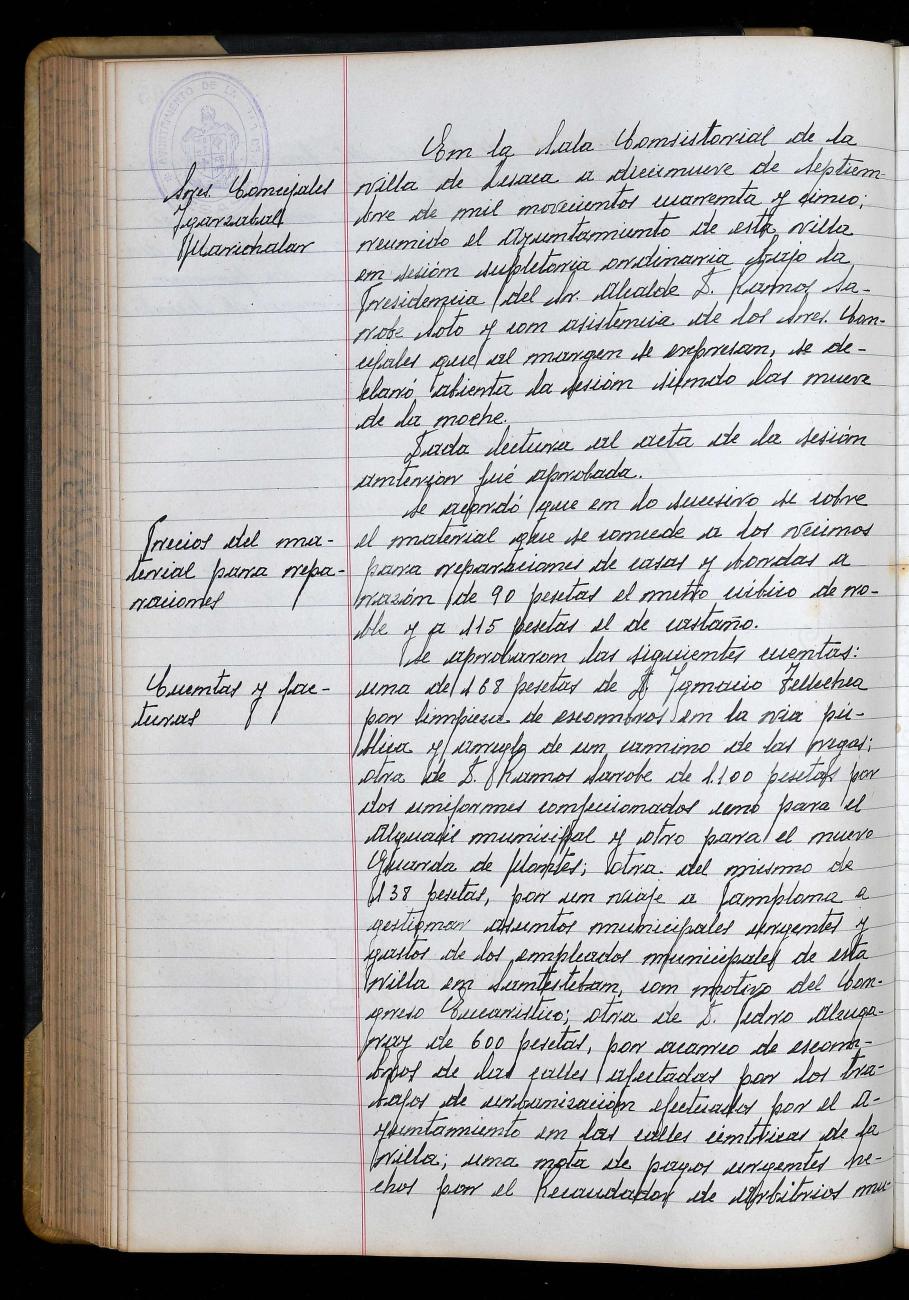 AYUNTAMIENTO DE LA
Sres. Concejales
Igarzabal
Marichalar
En la Sala Consistorial de la
villa de Lesaca a diecinueve de septiem-
bre de mil novecientos cuarenta y cinco;
reunido el Ayuntamiento de esta villa
en sesión supletoria ordinaria bajo la
Presidencia del Sr. Alcalde D. Ramos Sa-
robe Soto y con asistencia de los Sres. Con-
cejales que al margen se expresan, se de-
claró abierta la sesión siendo las nueve
de la noche.
Dada lectura al acta de la sesión
anterior fué aprobada.
Precios del ma-
terial para repa-
raciones
Se acordó que en lo sucesivo se cobre
el material que se concede a los vecinos
para reparaciones de casas y bordas a
razón de 90 pesetas el metro cúbico de ro-
ble y a 115 pesetas el de castaño.
Cuentas y fac-
turas
Se aprobaron las siguientes cuentas:
una de 168 pesetas de D. Ignacio Tellechea
por limpieza de escombros en la via pú-
blica y arreglo de un camino de las vegas;
otra de D. Ramos Sarobe de 1.100 pesetas por
dos uniformes confeccionados uno para el
Alguacil municipal y otro para el nuevo
Guarda de Montes; otra del mismo de
138 pesetas, por un viaje a Pamplona a
gestionar asuntos municipales urgentes y
gastos de los empleados municipales de esta
villa en Santesteban, con motivo del Con-
greso Eucaristico; otra de D. Pedro Alzuga-
ray de 600 pesetas, por acarreo de escom-
bros de las calles afectadas por los tra-
bajos de urbanización efectuados por el A-
yuntamiento en las calles céntricas de la
villa; una nota de pagos urgentes he-
chos por el Recaudador de Arbitrios mu-